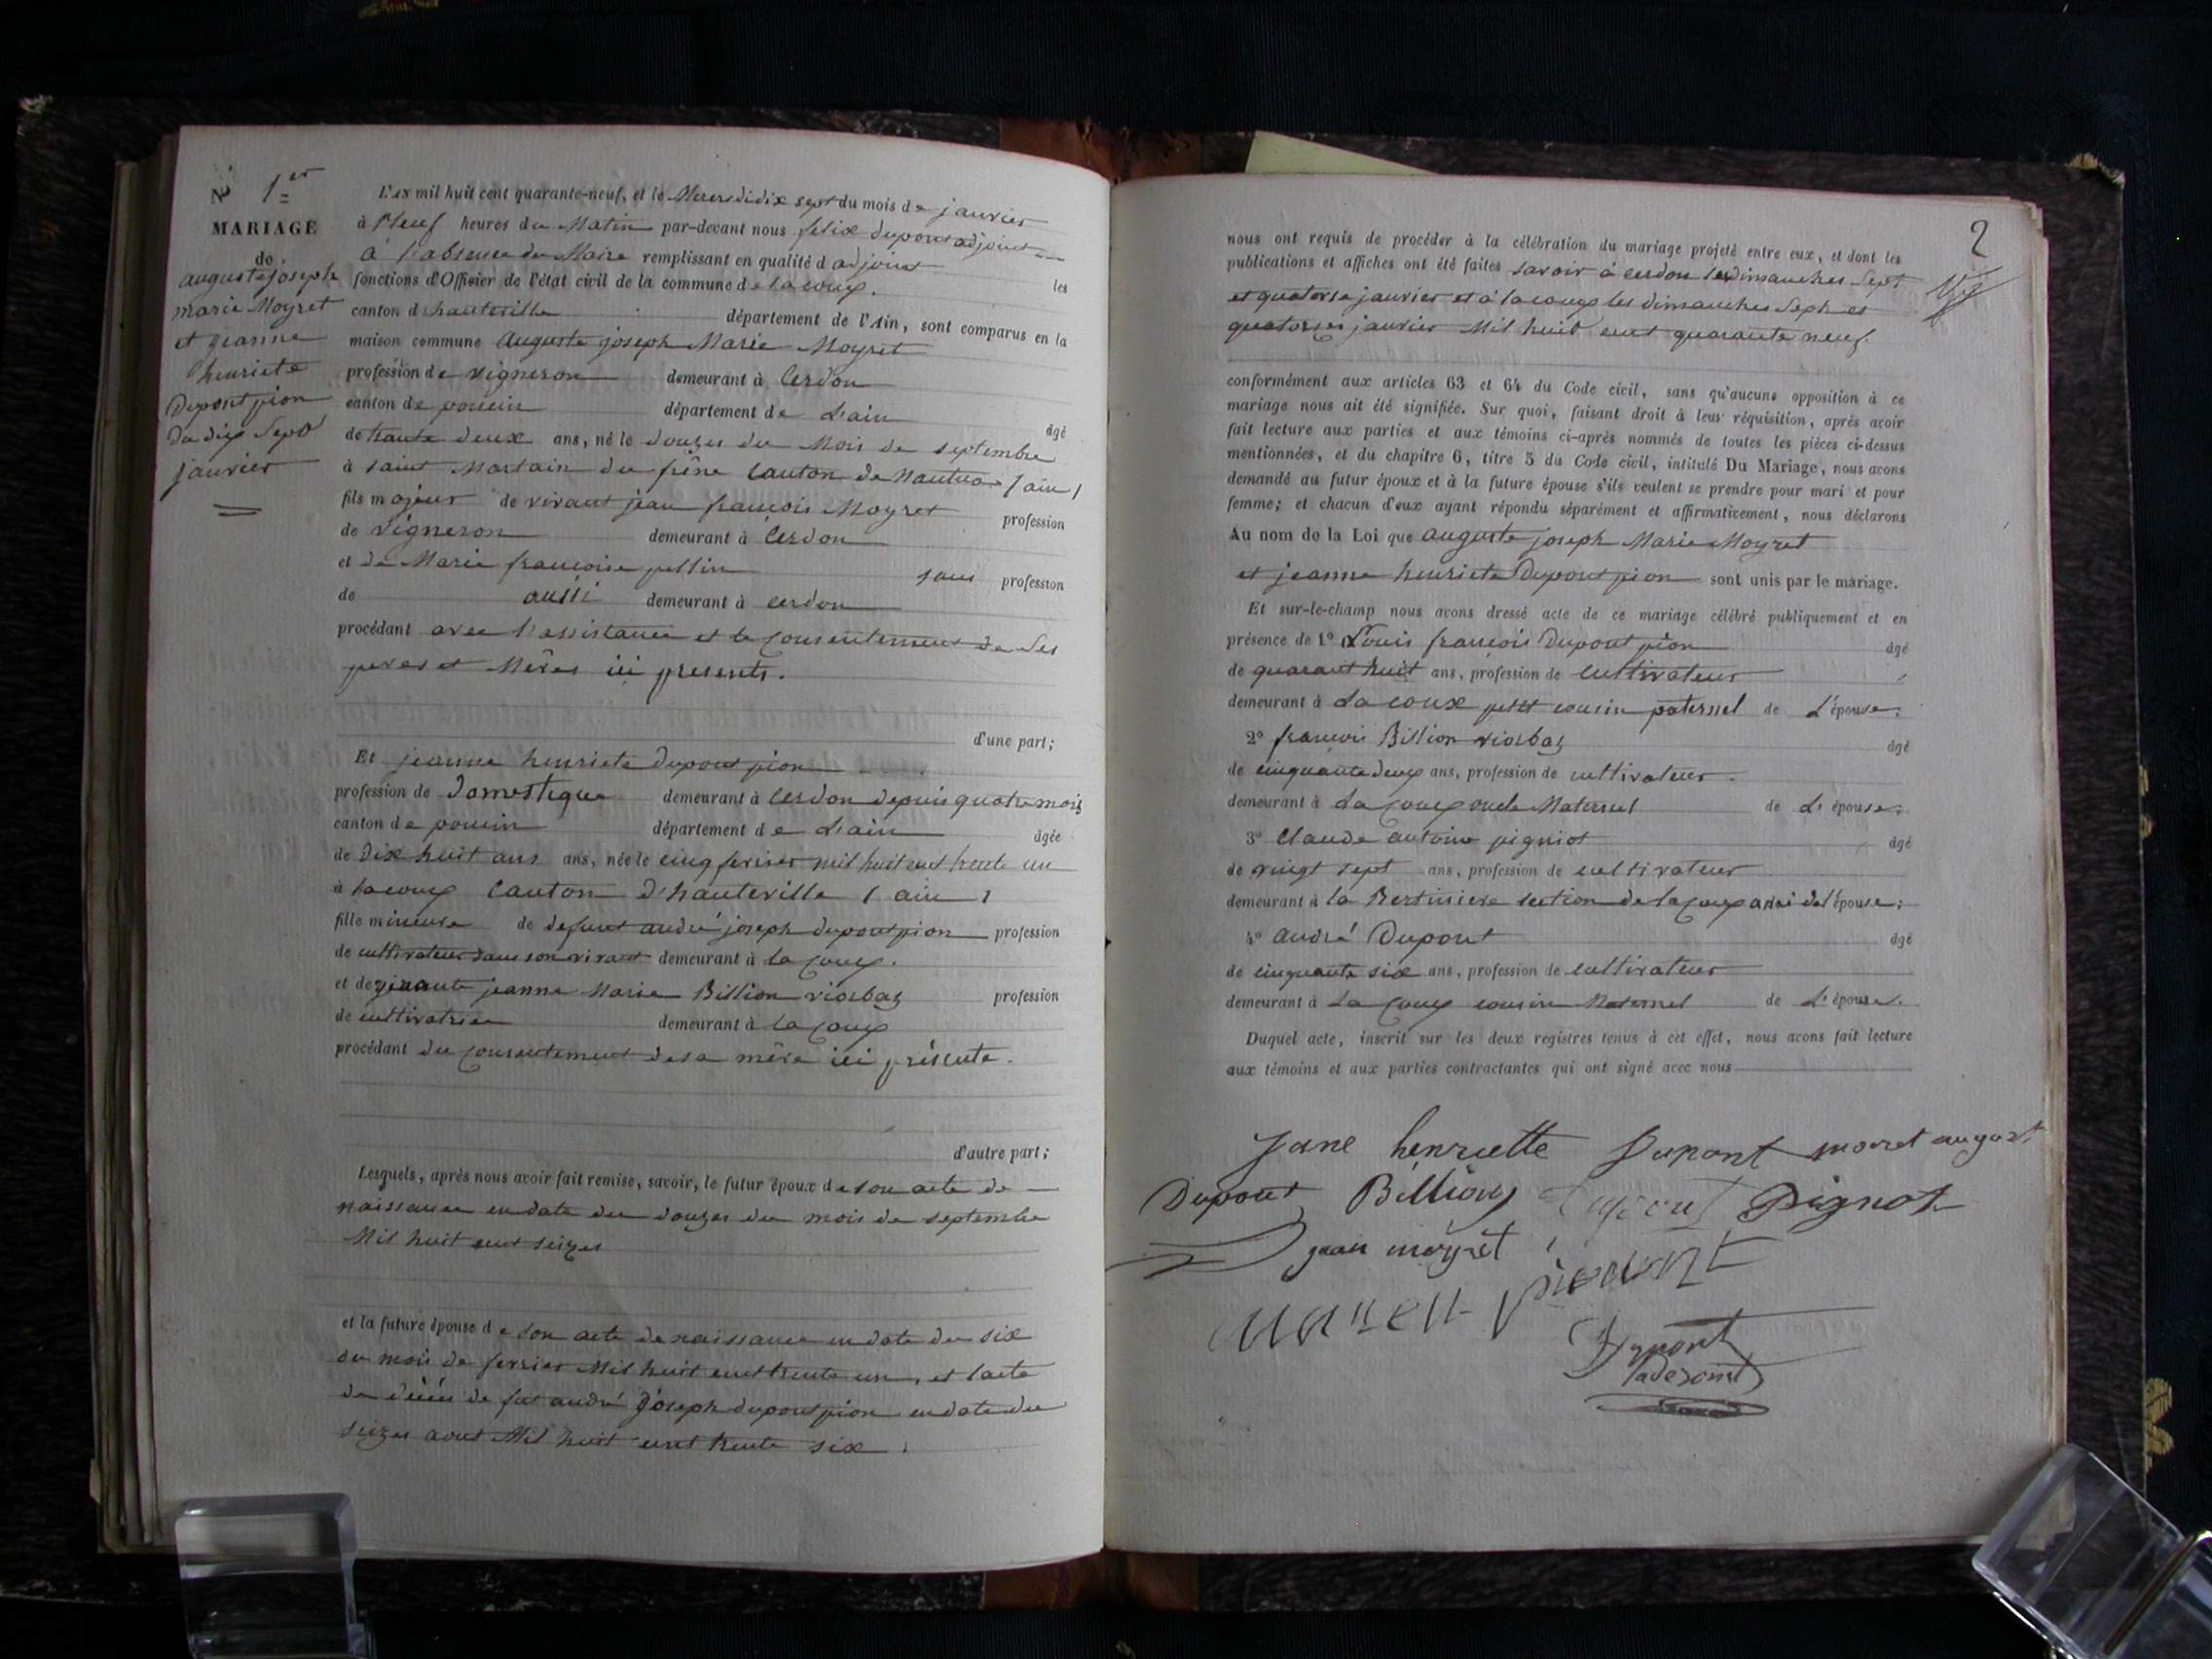 N° 1er
MARIAGE
de
auguste joseph
marie Moyret
et jeanne
henriete
Dupont pion
Du dix Sept
janvier
L'AN mil huit cent quarante-neuf, et le Mercredi dix sept du mois de janvier
à Neuf heures du Matin par-devant nous felix dupont adjoint
à l'absence du Maire remplissant en qualité d adjoint les
fonctions d'Officier de l'état civil de la commune de la coux.
canton d'hauteville département de l'Ain, sont comparus en la
maison commune Auguste joseph Marie Moyret
profession de vigneron demeurant à Cerdon
canton de poncin département de L'ain âgé
de trante deux ans, né le douzes du Mois de septembre
à saint Martain du frêne Canton de Nantua (ain)
fils majeur de vivant jean françois Moyret profession
de vigneron demeurant à Cerdon
et de Marie françoise pellin sans profession
de aussi demeurant à cerdon
procédant avec l'assistance et le consentement de Ses
peres et Mêres ici presents.
d'une part;
Et jeanne henriete Dupont pion
profession de domestique demeurant à Cerdon depuis quatre mois
canton de poncin département de L'ain âgée
de Dix huit ans ans, née le cinq fevrier mil huit cent trente un
à lacoux Canton d'hauteville (ain)
fille mineure de defunt andré joseph dupont pion profession
de cultivateur dans son vivant demeurant à la coux.
et de vivante jeanne Marie Billion viarbaz profession
de cultivatrice demeurant à la coux
procédant du consentement de sa mêre ici présente.
d'autre part;
Lesquels, après nous avoir fait remise, savoir, le futur époux de son acte de
naissance en date du douzes du mois de septembre
Mil huit cent seizes
et la future épouse de son acte de naissance en date du six
du mois de fevrier Mil huit cent trente un, et l'acte
de décés de feu andré joseph dupont pion en date du
seizes aout Mil huit cent trente six.
2
nous ont requis de procéder à la célébration du mariage projeté entre eux, et dont les
publications et affiches ont été faites savoir à cerdon les dimanches Sept
et quatorse janvier et à la coux les dimanches Sept et
quatorzes janvier Mil huit cent quarante neuf.
conformément aux articles 63 et 64 du Code civil, sans qu'aucune opposition à ce
mariage nous ait été signifiée. Sur quoi, faisant droit à leur réquisition, après avoir
fait lecture aux parties et aux témoins ci-après nommés de toutes les pièces ci-dessus
mentionnées, et du chapitre 6, titre 5 du Code civil, intitulé Du Mariage, nous avons
demandé au futur époux et à la future épouse s'ils veulent se prendre pour mari et pour
femme; et chacun d'eux ayant répondu séparément et affirmativement, nous déclarons
Au nom de la Loi que auguste joseph Marie Moyret
et jeanne henriete Dupont pion sont unis par le mariage.
Et sur-le-champ nous avons dressé acte de ce mariage célébré publiquement et en
présence de 1° Louis françois Dupont pion âgé
de quarant huit ans, profession de cultivateur
demeurant à La coux petit cousin paternel de L'épouse;
2° françois Billion viarbaz âgé
de cinquante deux ans, profession de cultivateur.
demeurant à La coux oncle Maternel de L'épouse;
3° Claude antoine pigniot âgé
de vingt sept ans, profession de cultivateur
demeurant à la Bertiniere section de la coux ami de l'épouse;
4° André Dupont âgé
de cinquante six ans, profession de cultivateur
demeurant à La coux cousin Maternel de L'épouse.
Duquel acte, inscrit sur les deux registres tenus à cet effet, nous avons fait lecture
aux témoins et aux parties contractantes qui ont signé avec nous
Jane henriette Dupont moiret august
Dupont Billiony Dupont Pignot
jean moyret
Dypont